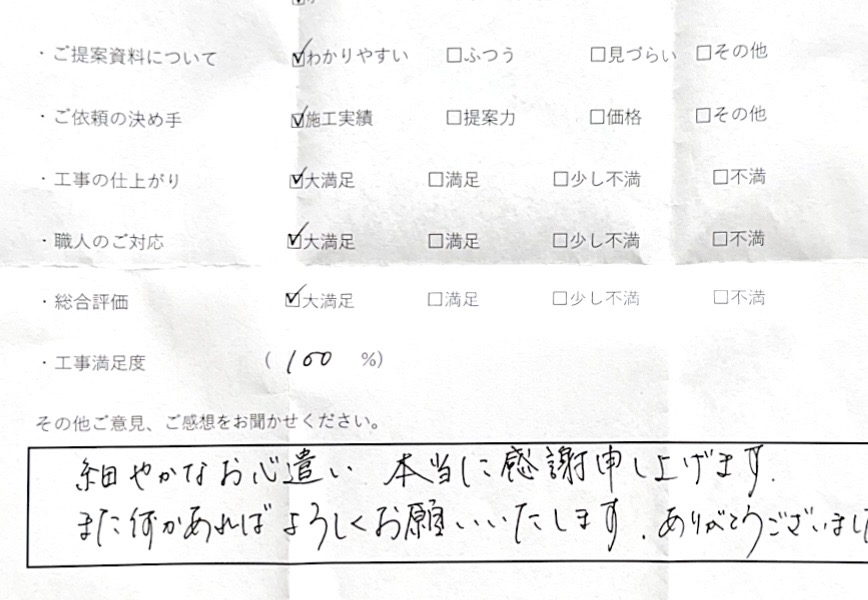 ・ご提案資料について ☑わかりやすい □ふつう □見づらい □その他
・ご依頼の決め手 ☑施工実績 □提案力 □価格 □その他
・工事の仕上がり ☑大満足 □満足 □少し不満 □不満
・職人のご対応 ☑大満足 □満足 □少し不満 □不満
・総合評価 ☑大満足 □満足 □少し不満 □不満
・工事満足度 (100 %)
その他ご意見、ご感想をお聞かせください。
細やかなお心遣い 本当に感謝申し上げます.
また何かあればよろしくお願いいたします. ありがとうございまし